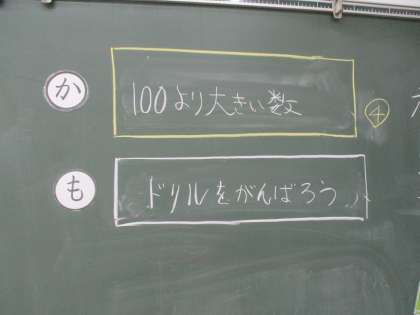 か 100より大きい数 ④
も ドリルをがんばろう